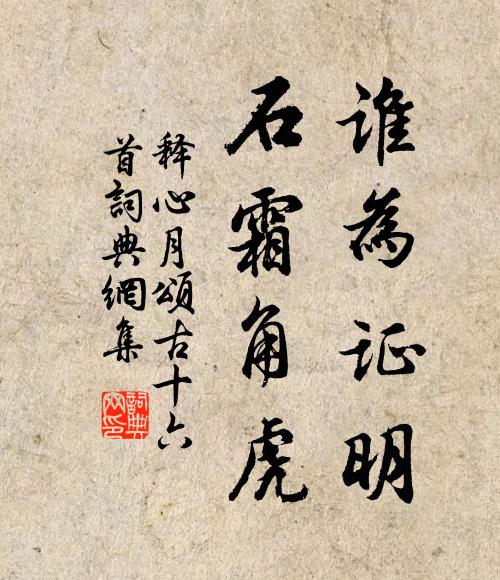 谁為证明
石霜角虎
释心月頌古十六
首詞典網集
詞典网印